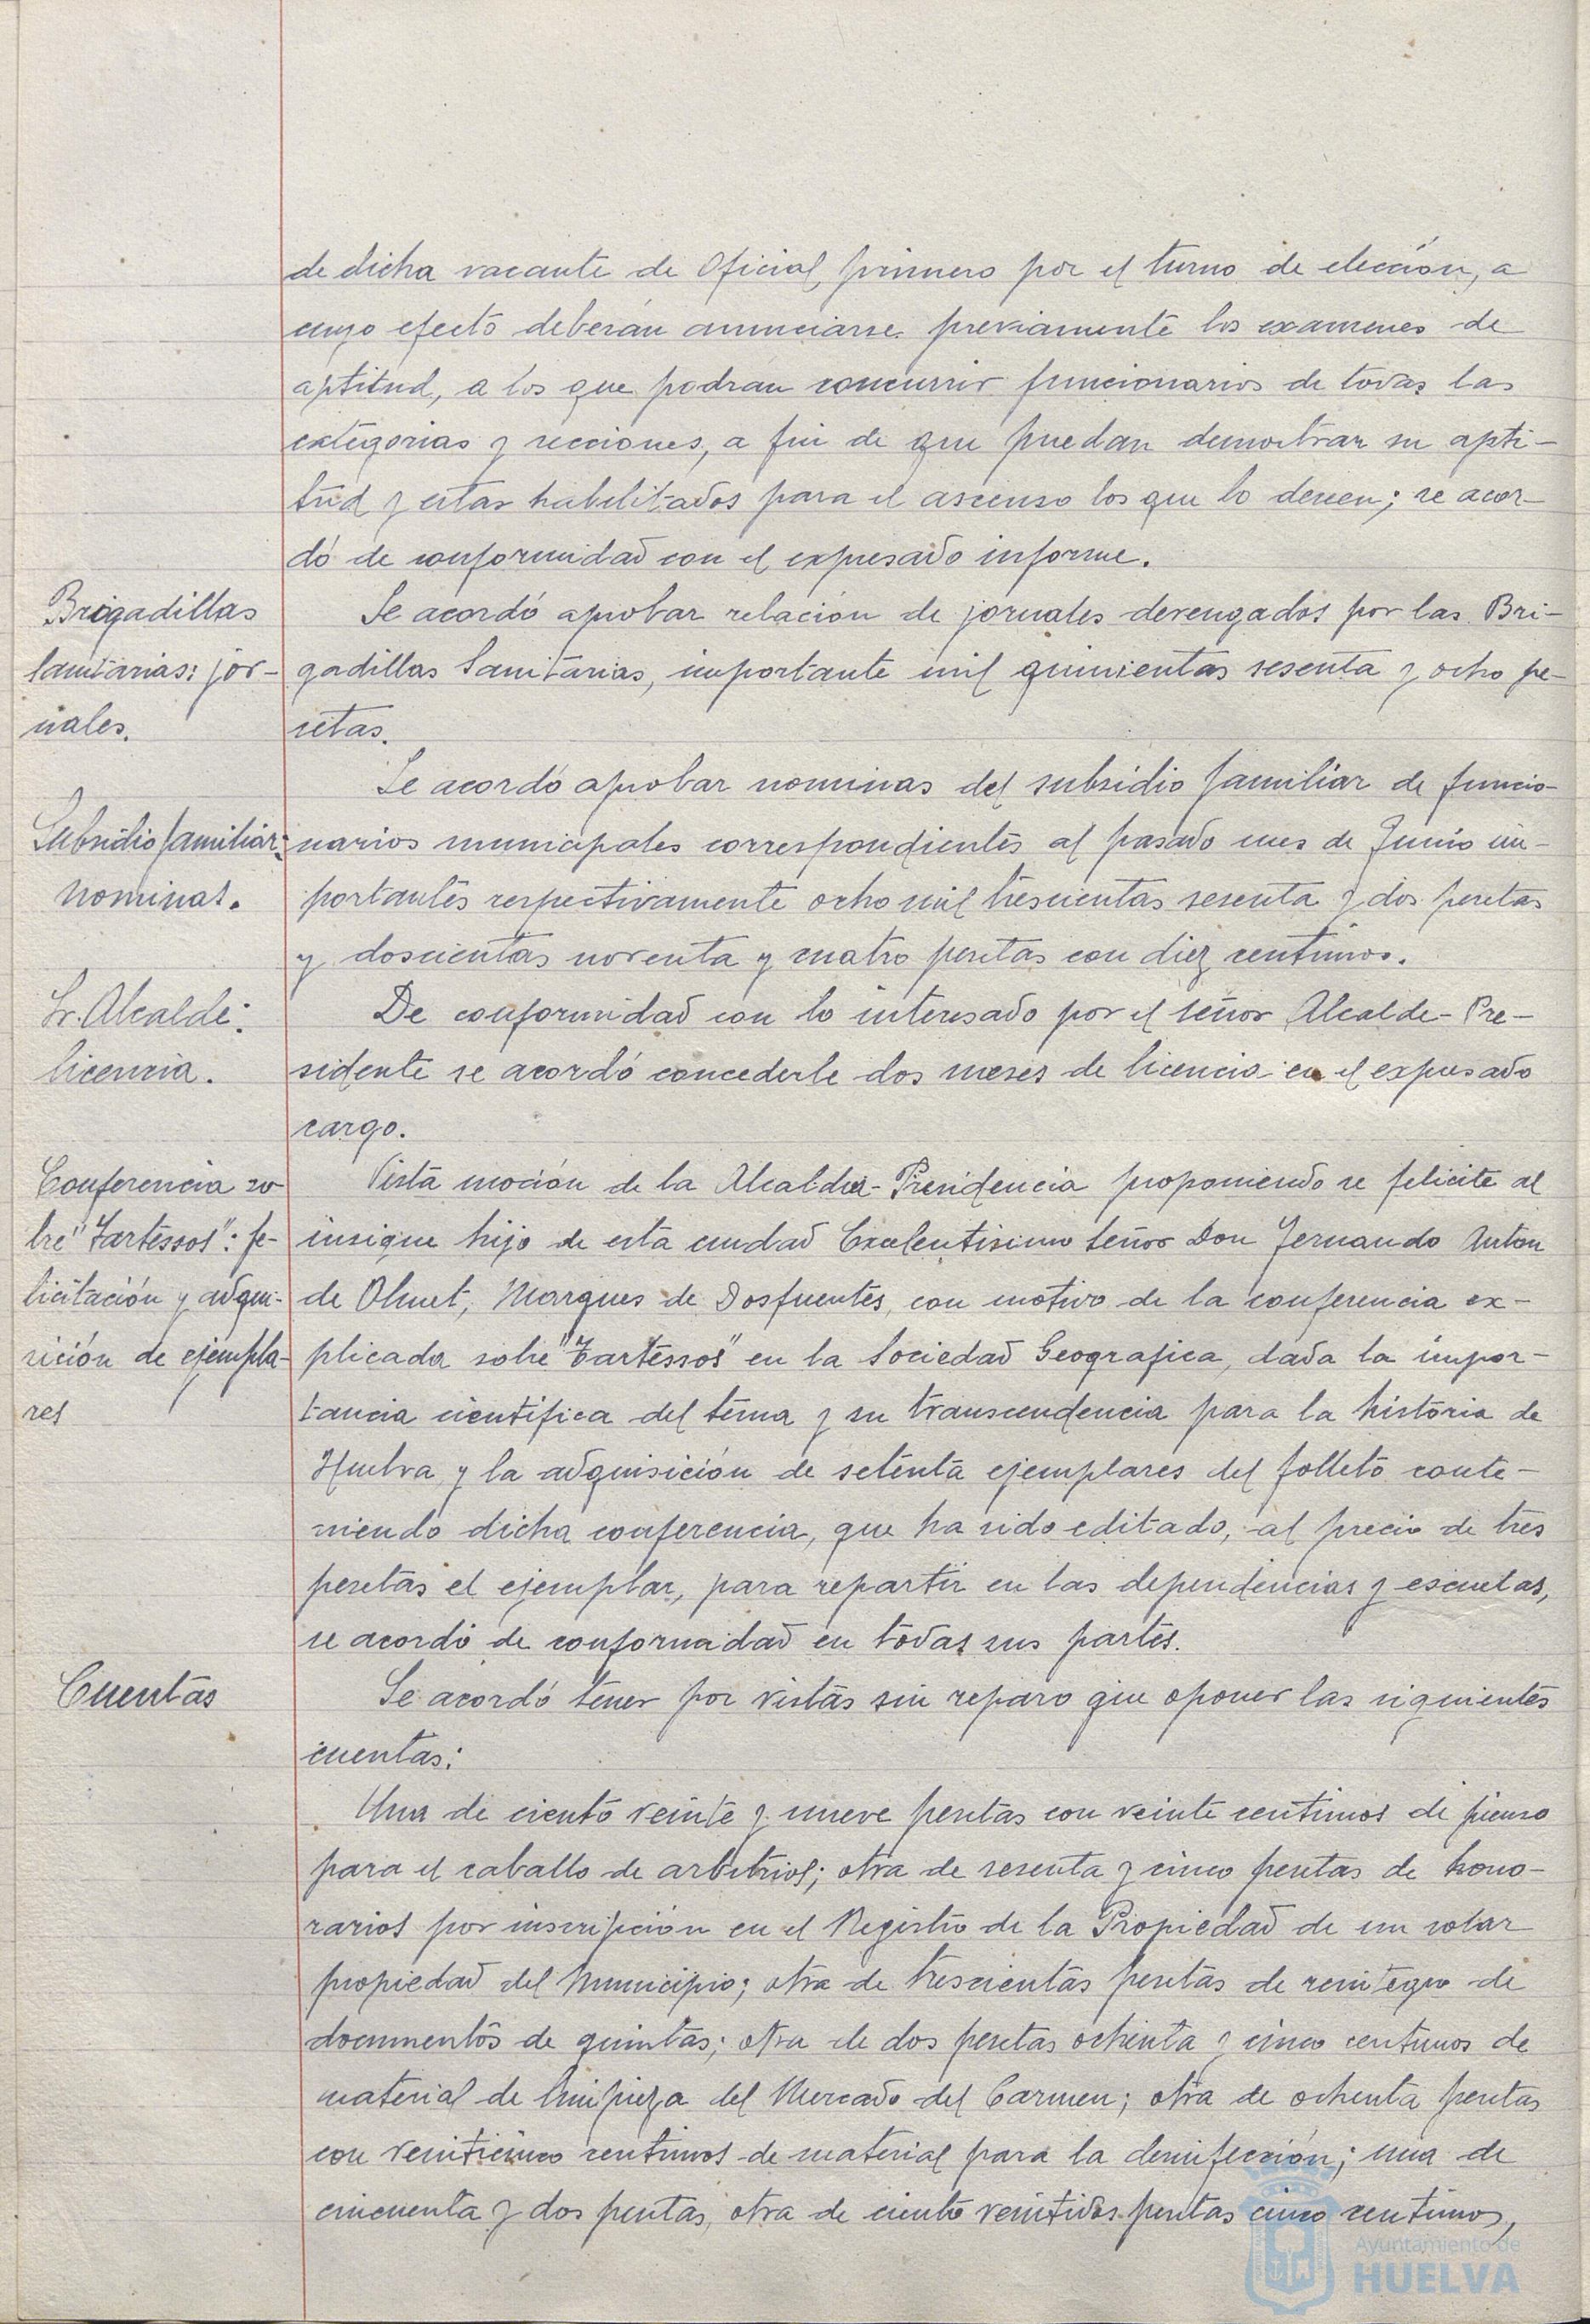 de dicha vacante de Oficial primero por el turno de elección, a
cuyo efecto deberán anunciarse previamente los examenes de
aptitud, a los que podran concurrir funcionarios de todas las
categorias y secciones, a fin de que puedan demostrar su apti-
tud y estar habilitados para el ascenso los que lo deseen; se acor-
dó de conformidad con el expresado informe.
Brigadillas
Sanitarias: jor-
nales.
Se acordó aprobar relación de jornales devengados por las Bri-
gadillas Sanitarias, importante mil quinientas sesenta y ocho pe-
setas.
Subsidio familiar:
nominas.
Se acordó aprobar nominas del subsidio familiar de funcio-
narios municipales correspondientes al pasado mes de Junio im-
portantes respectivamente ocho mil trescientas sesenta y dos pesetas
y doscientas noventa y cuatro pesetas con diez centimos.
Sr. Alcalde:
licencia.
De conformidad con lo interesado por el señor Alcalde-Pre-
sidente se acordó concederle dos meses de licencia en el expresado
cargo.
Conferencia so-
bre "Tartessos": fe-
licitación y adqui-
sición de ejempla-
res
Vista moción de la Alcaldia-Presidencia proponiendo se felicite al
insigne hijo de esta ciudad Excelentisimo señor Don Fernando Anton
de Olmet, Marques de Dosfuentes, con motivo de la conferencia ex-
plicada sobre "Tartessos" en la Sociedad Geografica, dada la impor-
tancia cientifica del tema y su transcendencia para la historia de
Huelva y la adquisición de setenta ejemplares del folleto conte-
niendo dicha conferencia, que ha sido editado, al precio de tres
pesetas el ejemplar, para repartir en las dependencias y escuelas,
se acordó de conformidad en todas sus partes.
Cuentas
Se acordó tener por vistas sin reparo que oponer las siguientes
cuentas:
Una de ciento veinte y nueve pesetas con veinte centimos de pienso
para el caballo de arbitrios; otra de sesenta y cinco pesetas de hono-
rarios por inscripción en el Registro de la Propiedad de un solar
propiedad del Municipio; otra de trescientas pesetas de reintegro de
documentos de quintas; otra de dos pesetas ochenta y cinco centimos de
material de limpieza del Mercado del Carmen; otra de ochenta pesetas
con veinticinco centimos de material para la desinfección; una de
cincuenta y dos pesetas, otra de ciento veintidos pesetas cinco centimos,
Ayuntamiento de
HUELVA